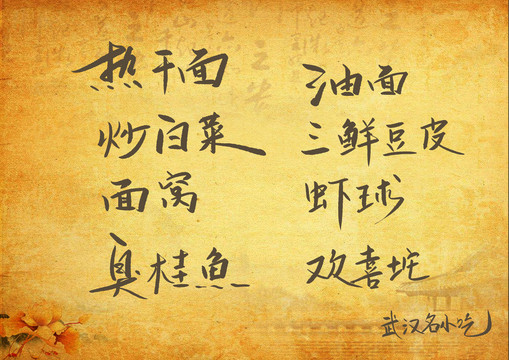 热干面
油面
炒白菜
三鲜豆皮
面窝
虾球
臭桂鱼
欢喜坨
武汉名小吃